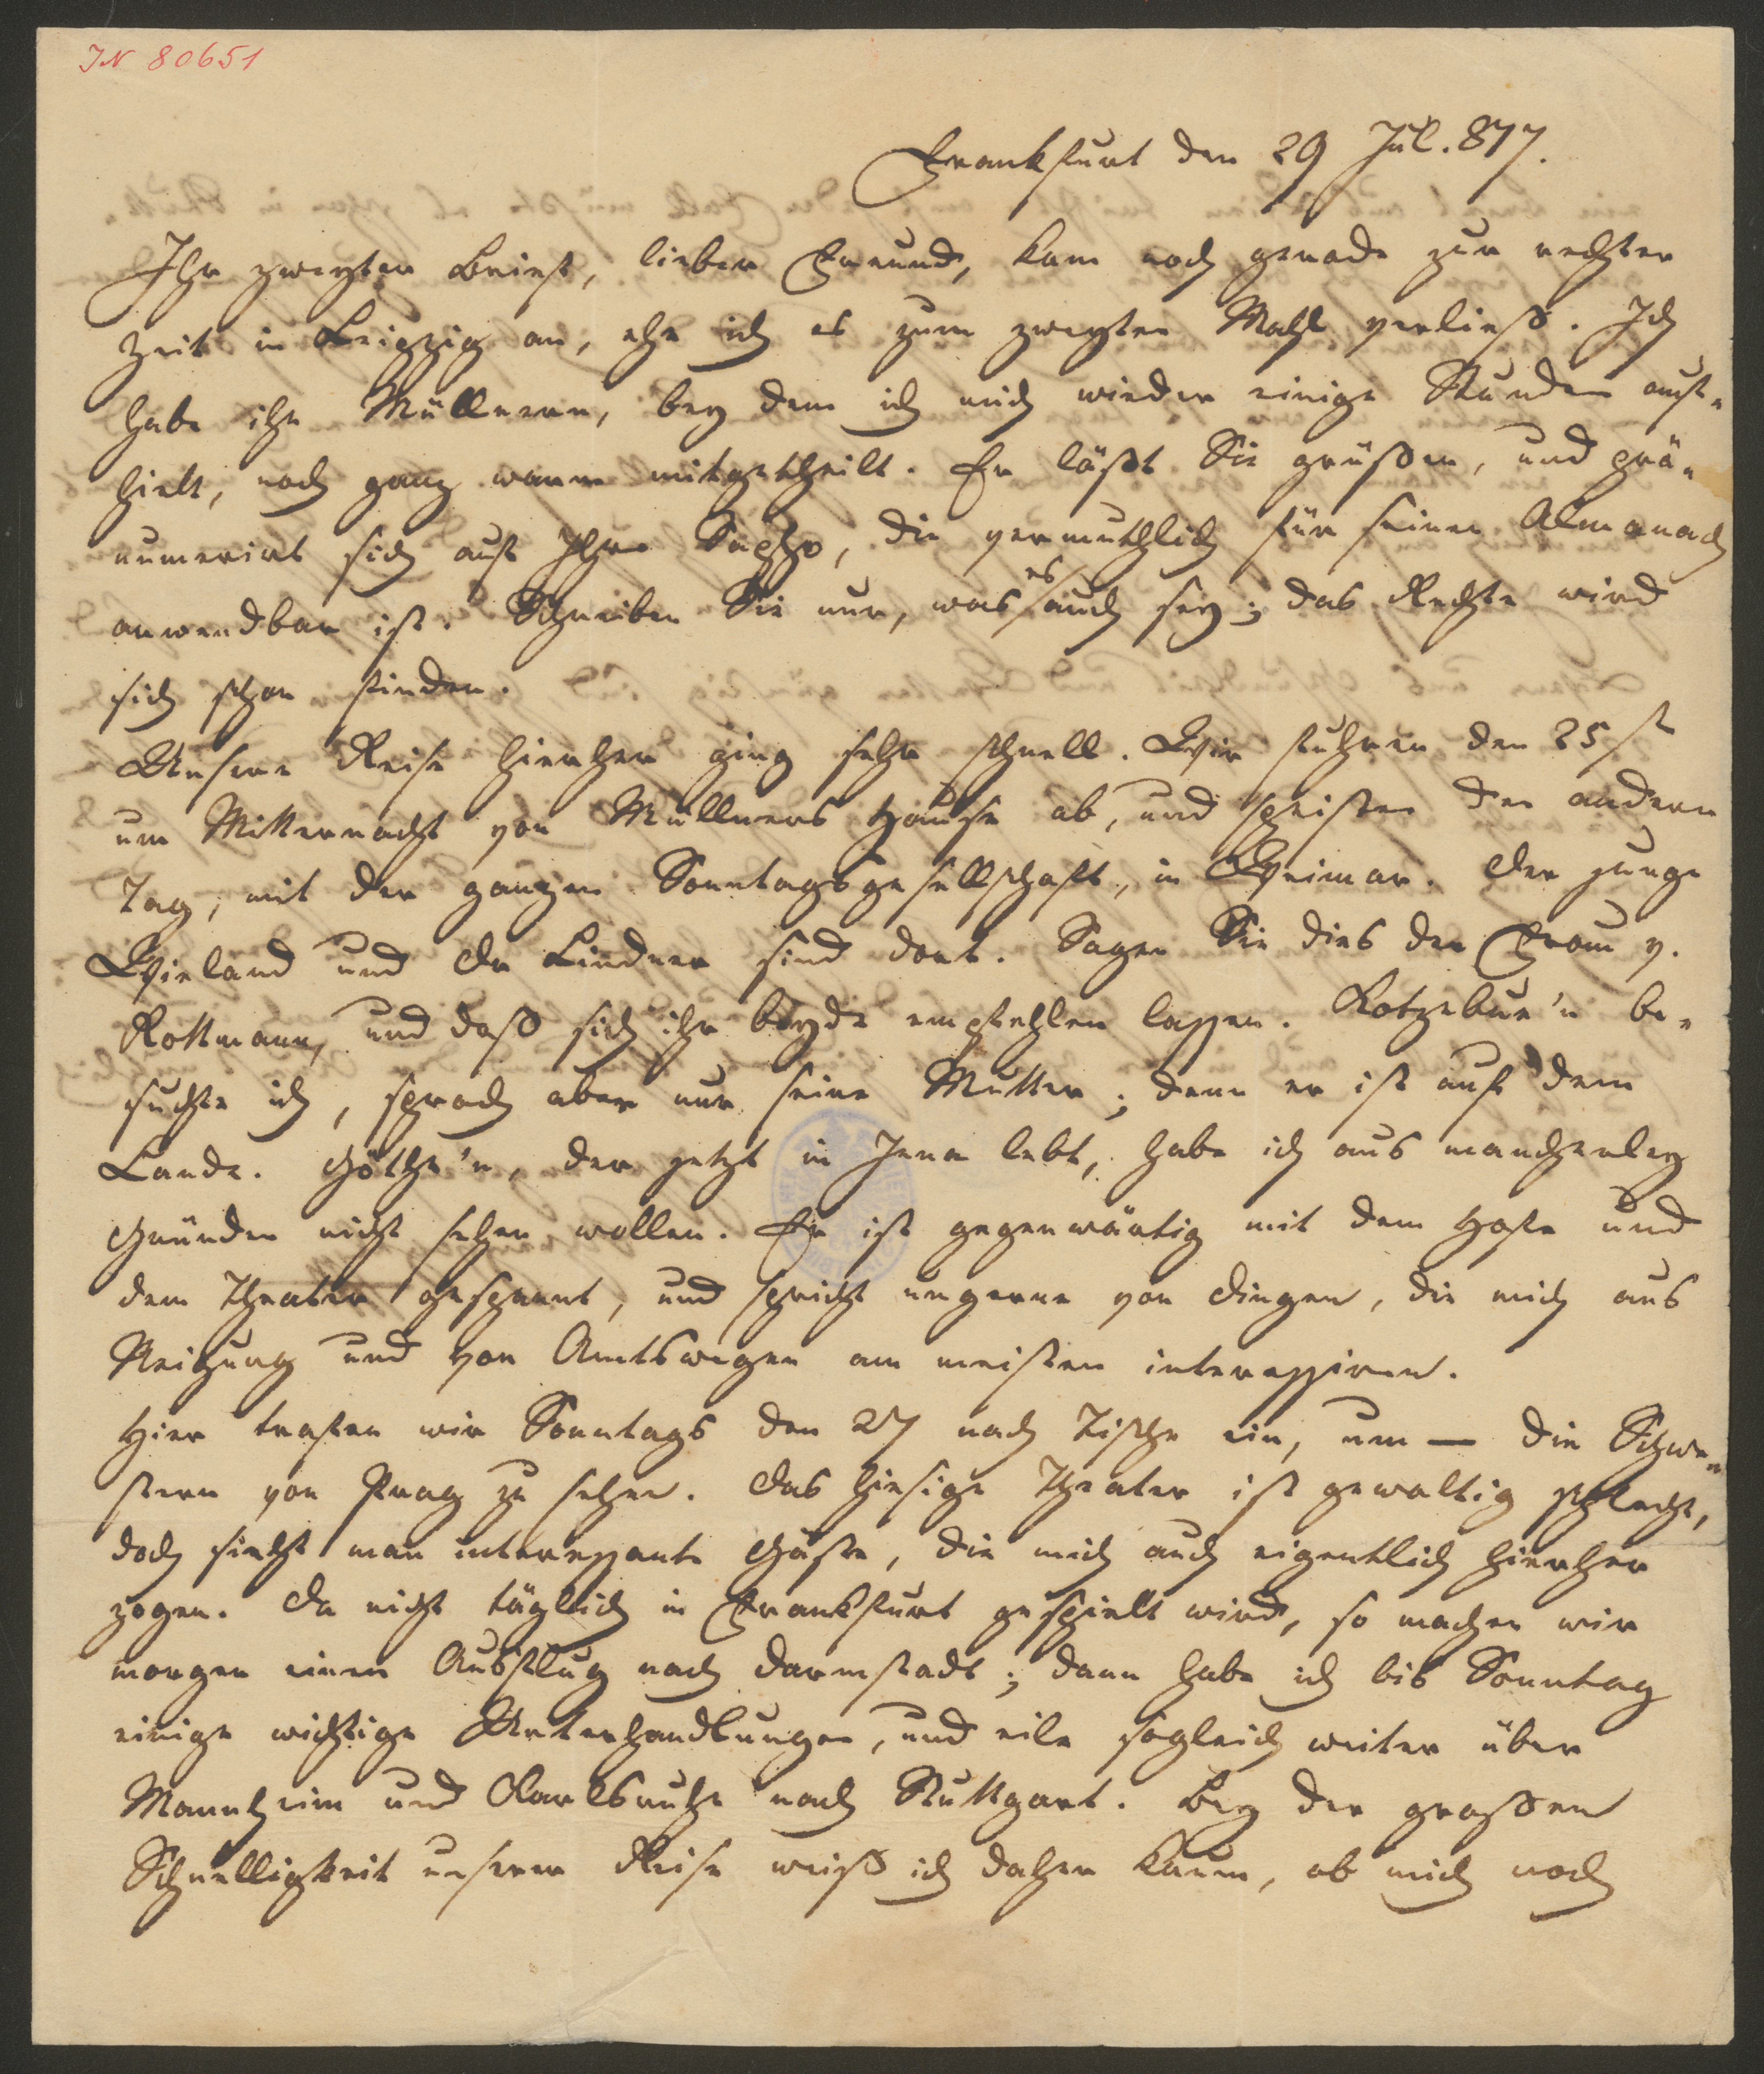 IN 80651
Frankfurt den 29 Jul. 817.
Ihr zweyter Brief, lieber Freund, kam noch gerade zur rechten
Zeit in Leipzig an, ehe ich es zum zweyten Mahl verließ. Ich
habe ihn Müllnern, bey dem ich mich wieder einige Stunden auf-
hielt, noch ganz warm mitgetheilt. Er läßt Sie grüßen, und prä-
numerirt sich auf Ihre Sappho, die vermuthlich für seinen Almanach
anwendbar ist. Schreiben Sie nur, was es auch sey; das Rechte wird
sich schon finden.
Unsere Reise hierher ging sehr schnell. Wir fuhren den 25st
um Mitternacht von Müllners Hause ab, und speisten den andern
Tag, mit der ganzen Sonntagsgesellschaft, in Weimar. Der junge
Wieland und Dr Lindner sind dort. Sagen Sie dies der Frau v.
Rottmann, und daß sich ihr beyde empfehlen lassen. Kotzebue'n be-
suchte ich, sprach aber nur seine Mutter; denn er ist auf dem
Lande. Göthe'n, der jetzt in Jena lebt, habe ich aus mancherley
Gründen nicht sehen wollen. Er ist gegenwärtig mit dem Hofe und
dem Theater gespannt, und spricht ungerne von Dingen, die mich aus
Neigung und von Amtswegen am meisten interessiren.
Hier trafen wir Sonntags den 27 nach Tische ein, um — die Schwe-
stern von Prag zu sehen. Das hiesige Theater ist gewaltig schlecht,
doch sieht man interessante Gäste, die mich auch eigentlich hierher
zogen. Da nicht täglich in Frankfurt gespielt wird, so machen wir
morgen einen Ausflug nach Darmstadt; dann habe ich bis Sonntag
einige wichtige Unterhandlungen, und eile sogleich weiter über
Mannheim und Karlsruhe nach Stuttgart. Bey der großen
Schnelligkeit unserer Reise weiß ich daher kaum, ob mich noch